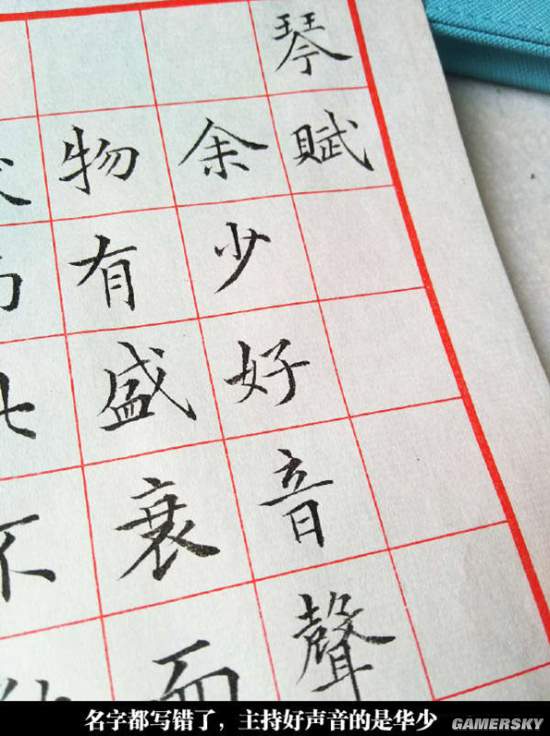 琴賦
余少好音聲
物有盛衰而
不
名字都写错了，主持好声音的是华少
GAMERSKY